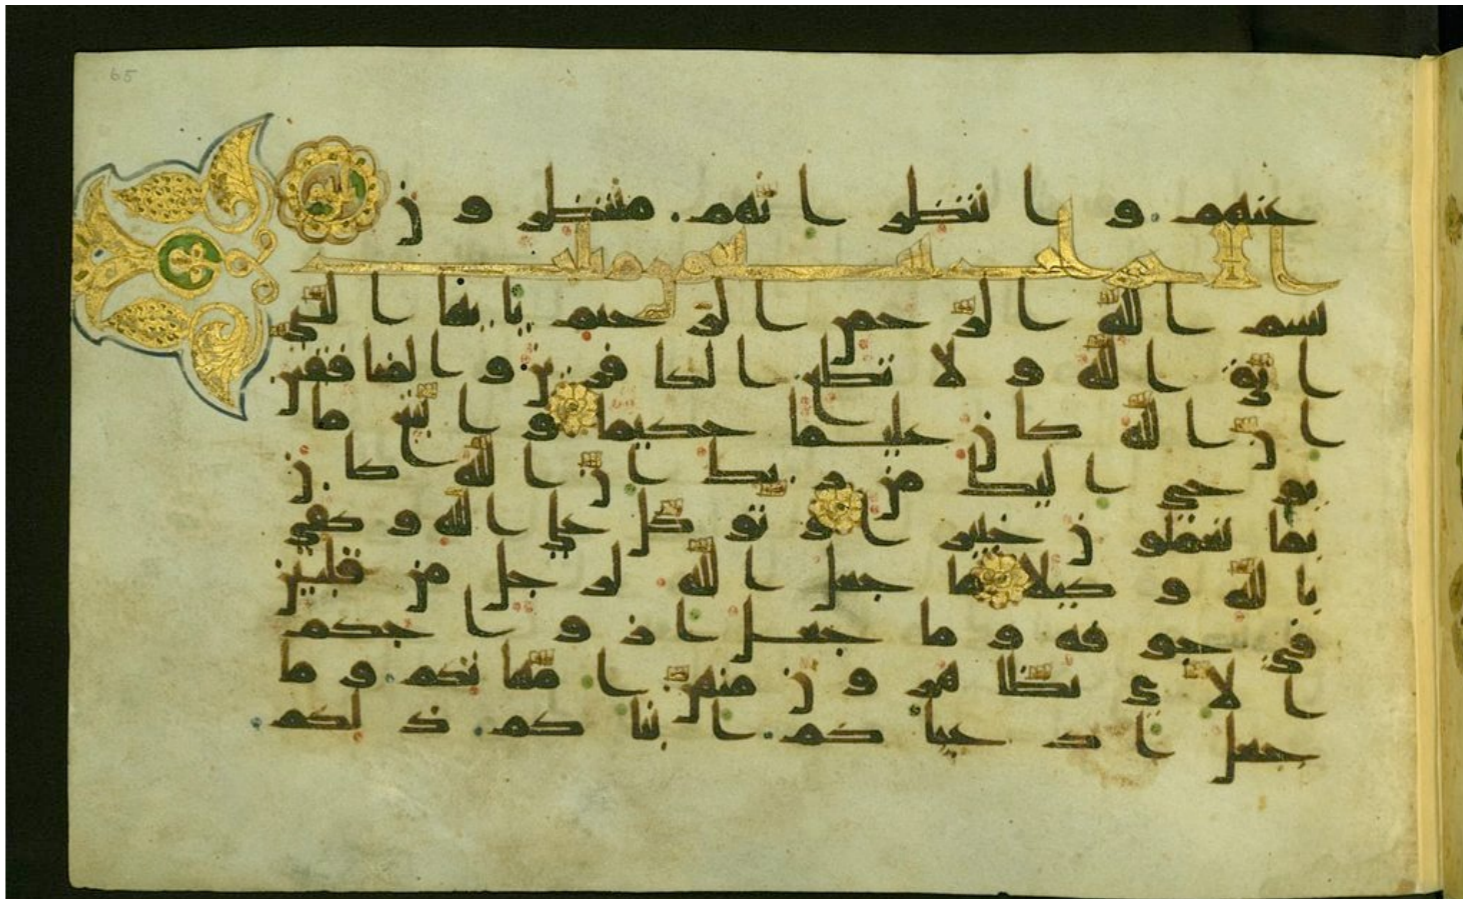 65
عنهم وانتظر انهم منتظرون
الاحزاب
بسم الله الرحمن الرحيم يايها النبي
اتق الله ولا تطع الكافرين والمنافقين
ان الله كان عليما حكيما واتبع ما
يوحى اليك من ربك ان الله كان
بما تعملون خبيرا وتوكل على الله وكفى
بالله وكيلا ما جعل الله لرجل من قلبين
في جوفه وما جعل ازواجكم
الاي تظاهرون منهن امهاتكم وما
جعل ادعياكم ابناكم ذلكم